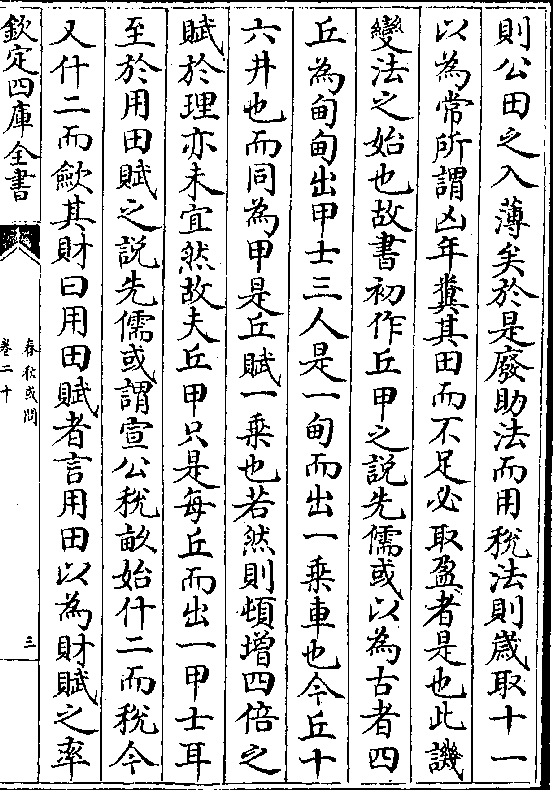 則公田之入薄矣於是廢助法而用稅法則歲取十一
以為常所謂凶年糞其田而不足必取盈者是也此譏
變法之始也故書初作丘甲之說先儒或以為古者四
丘為甸甸出甲士三人是一甸而出一乘車也今丘十
六井也而同為甲是丘賦一乘也若然則頓增四倍之
賦於理亦未宜然故夫丘甲只是每丘而出一甲士耳
至於用田賦之說先儒或謂宣公稅畝始什二而稅今
又什二而歛其財曰用田賦者言用田以為財賦之率
欽定四庫全書
春秋或問
卷二十
三